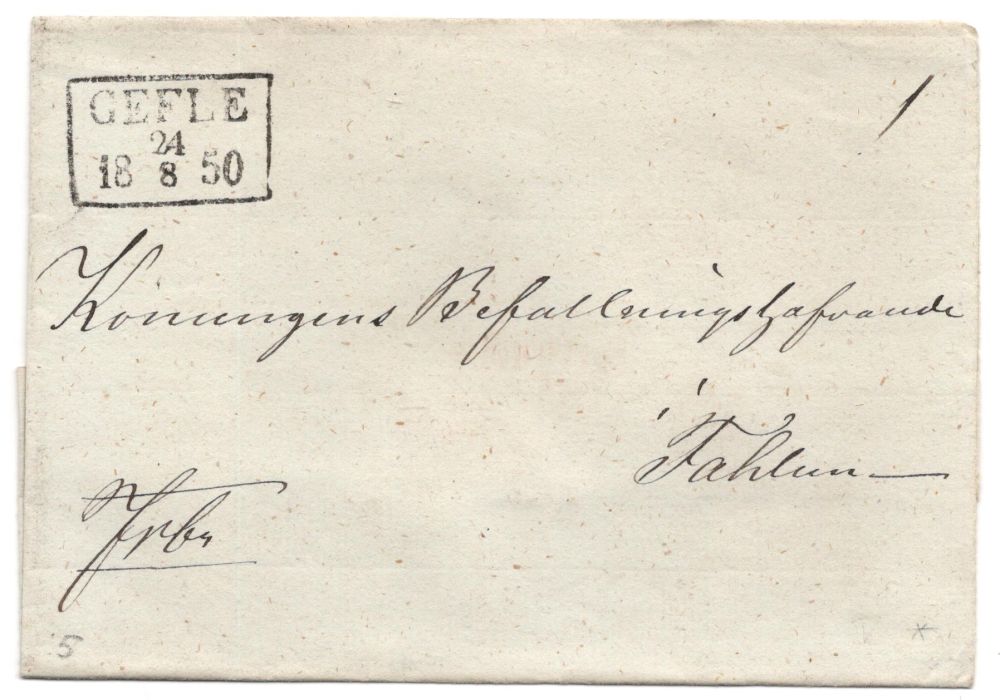 GEFLE
24
18 8 50
1
Konungens Befallningshafvande
i Fahlun
Frbr
5